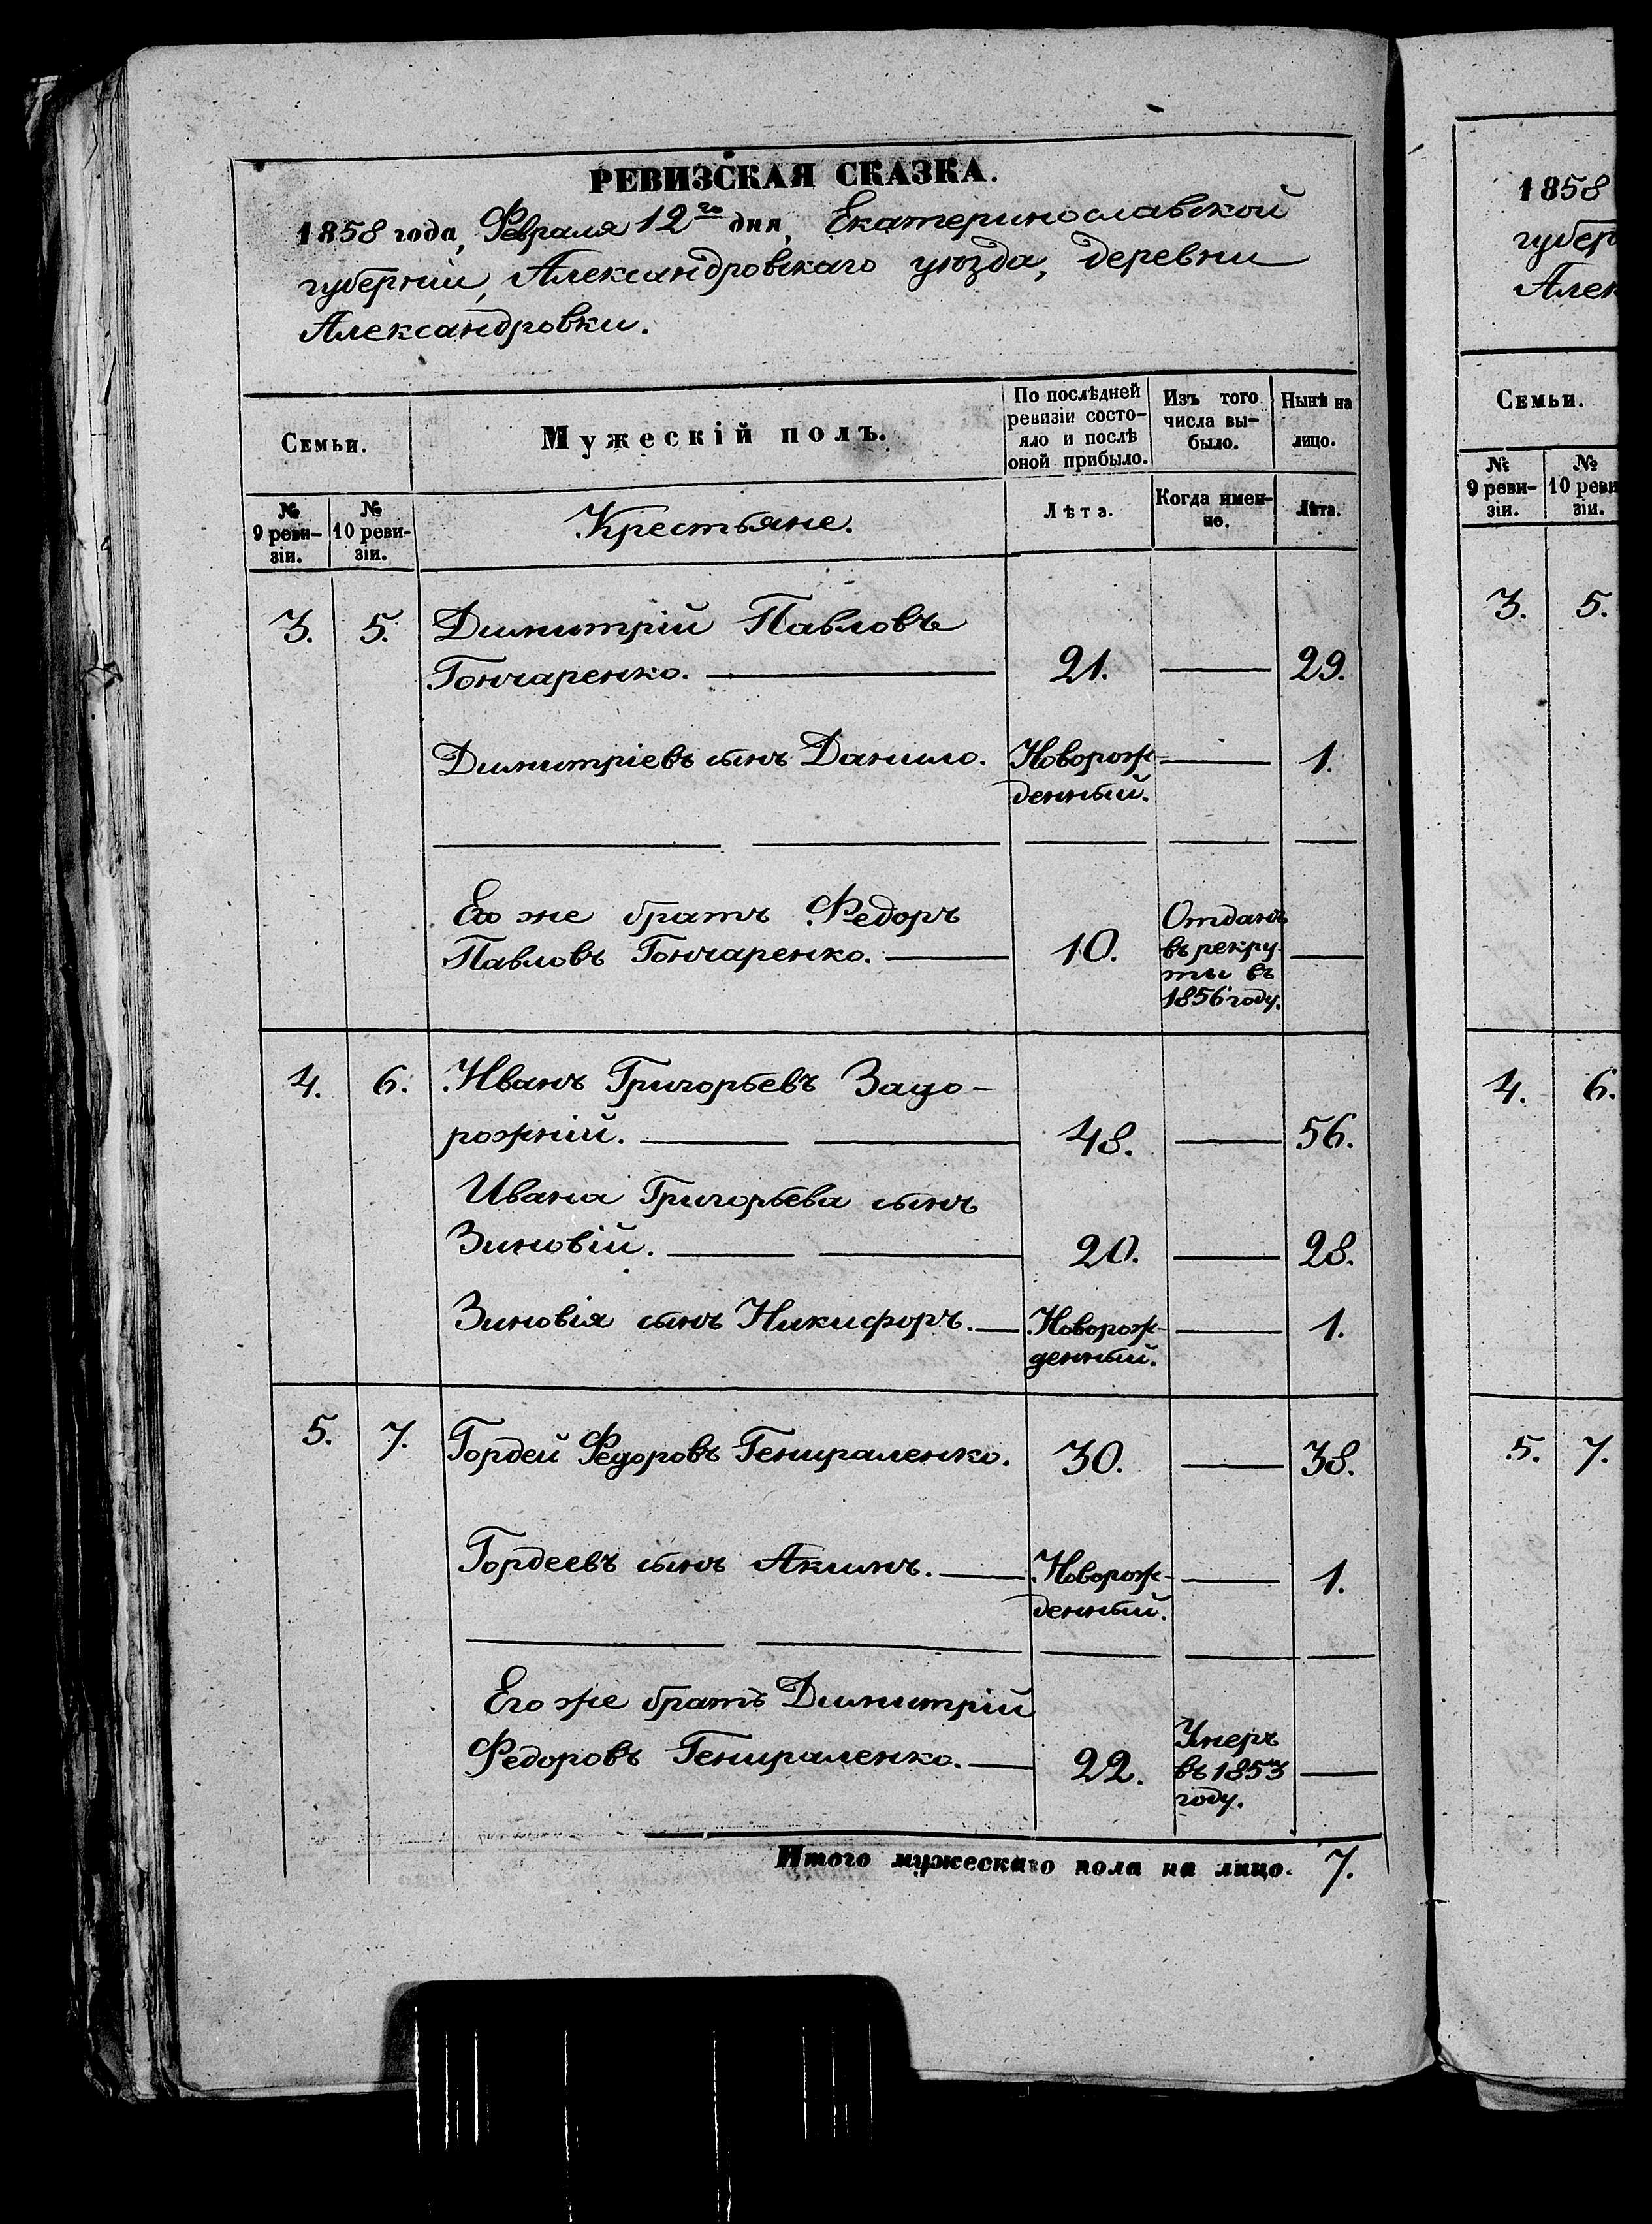 РЕВИЗСКАЯ СКАЗКА.
1858 года, Февраля 12го дня, Екатеринославской
губерніи, Александровскаго уѣзда, деревни
Александровки.
Семьи.
Мужескій полъ.
По послѣдней
ревизіи состо-
яло и послѣ
оной прибыло.
Изъ того
числа вы-
было.
Нынѣ на
лицо.
№
9 реви-
зіи.
№
10 реви-
зіи.
Крестьяне.
Лѣта.
Когда имен-
но.
Лѣта.
3. 5. Димитрій Павловъ
Гончаренко. 21. 29.
Димитріевъ сынъ Данило. Новорож- 1.
денный.
Его же братъ Федоръ
Павловъ Гончаренко. 10.
Отданъ
въ рекру-
ты въ
1856 году.
4. 6. Иванъ Григорьевъ Задо-
рожній. 48. 56.
Ивана Григорьева сынъ
Зиновій. 20. 28.
Зиновія сынъ Никифоръ. Новорож- 1.
денный.
5. 7. Гордей Федоровъ Генираленко. 30. 38.
Гордеевъ сынъ Акимъ. Новорож- 1.
денный.
Его же братъ Димитрій
Федоровъ Генираленко. 22.
Умеръ
въ 1853
году.
Итого мужескаго пола на лицо. 7.
1858
губер
Алек
Семьи.
№
9 реви-
зіи.
№
10 реви
зіи.
3. 5.
4. 6.
5. 7.